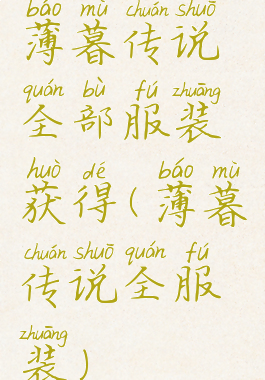 báo mù chuán shuō
薄暮传说
quán bù fú zhuāng
全部服装
huò dé báo mù
获得(薄暮
chuán shuō quán fú
传说全服
zhuāng
装)